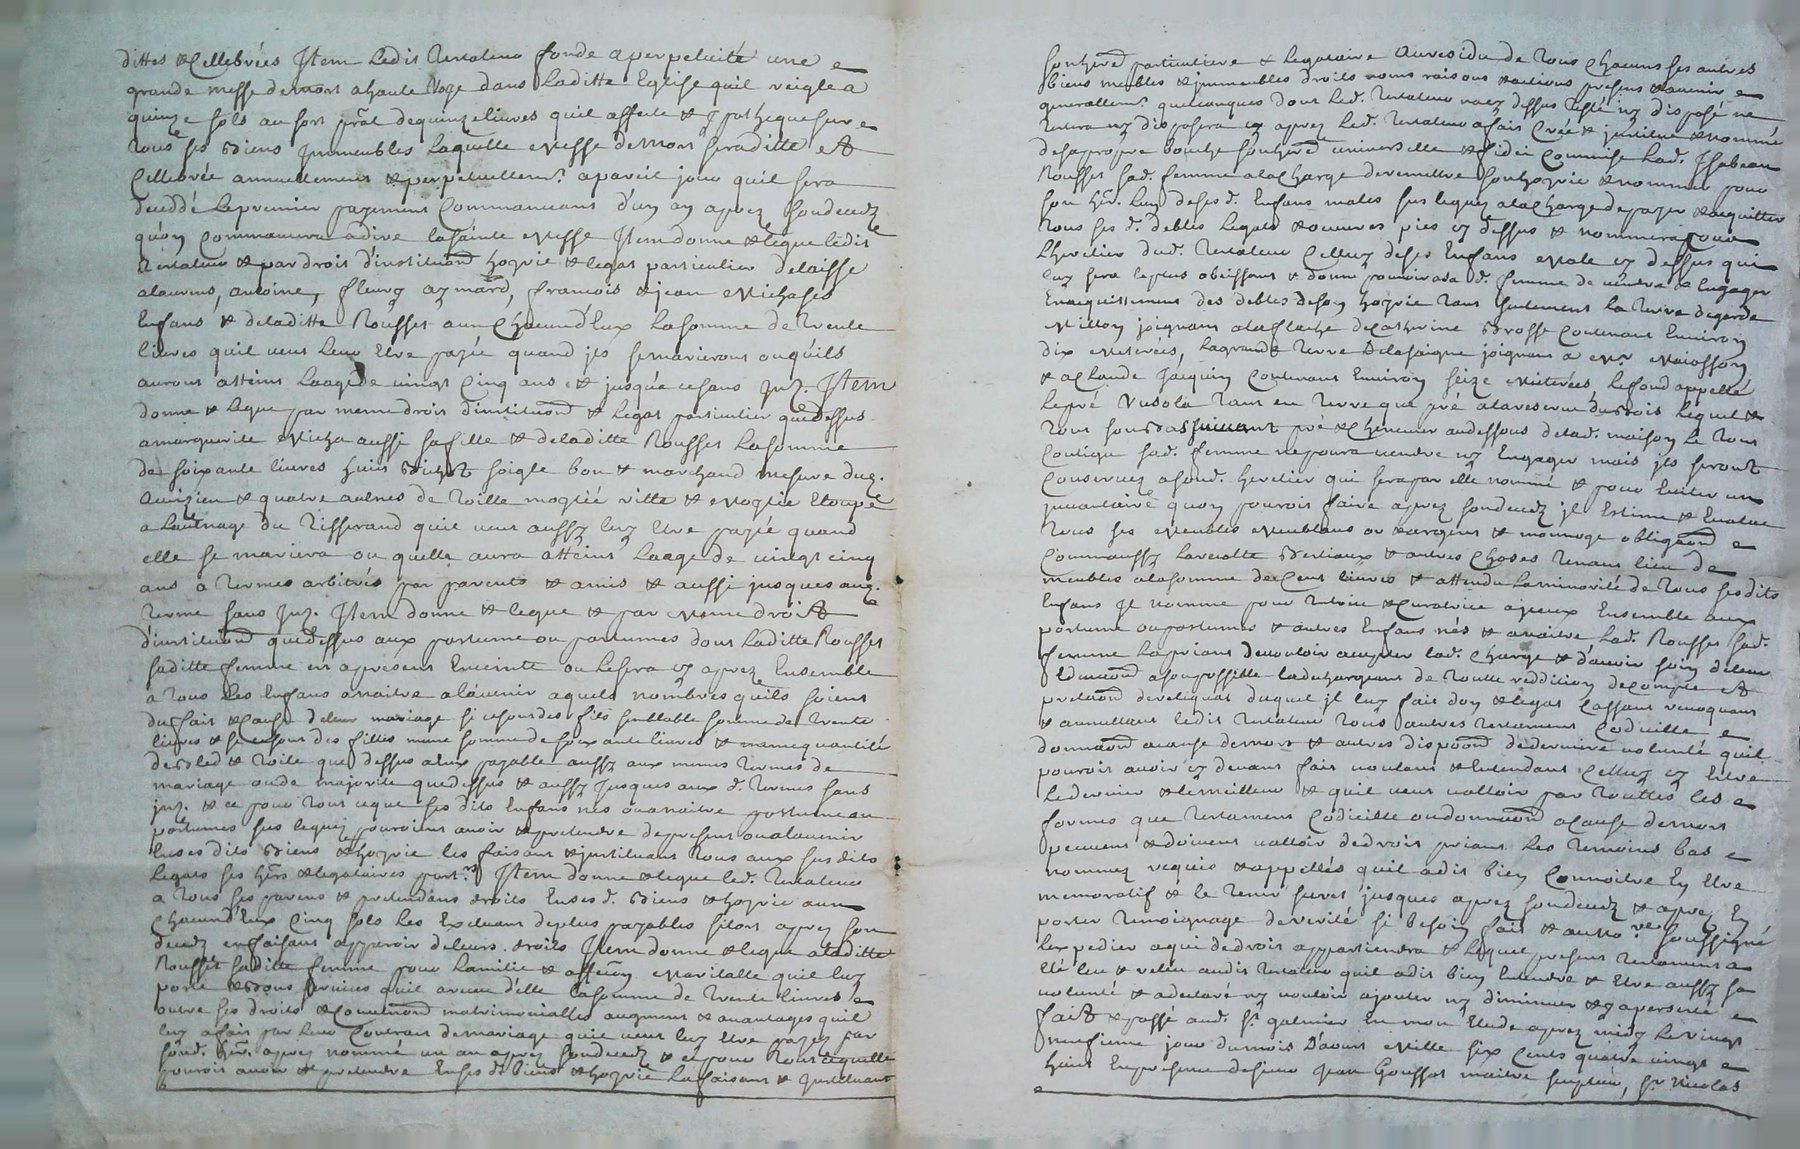 dittes & Cellebrées Item Ledit Testateur fonde a perpetuité une
grande messe de mort a haute Voye dans Laditte Eglise quil reigle a
quinze sols au sort pñal de quinze livres quil affecte & ypotheque sur
tous ses biens Immeubles Laquelle Messe de Mort sera ditte &
Cellebrée annuellement & perpetuellemt. a pareil jour quil sera
deceddé Le premier payement Commancant d'un an aprez son decedz
qu'on Commancera a dire la sainte Messe Item donne & legue ledit
Testateur & par droit d'institu͠on hoyrie & legat particulier delaisse
a laurens, antoine, fleury aymard, francois & jean Michases
Enfans & de laditte Rousset a un Chacund'Eux La somme de Trente
livres quil veut Leur Etre payée quand jls se marieront ou qu'ils
auront atteint Laage de vingt Cinq ans & jusqu'a ce sans Inz. Item
donne & legue par meme droit d'institu͠on & legat particulier que dessus
a marguerite Micha aussi sa fille & de laditte Rousset La somme
de soixante livres huit bichet soigle bon & marchand mesure dud.
& quatre aulnes de Toille moytié ritte & Moytié Etoupe
a Laulnage du Tisserand quil veut aussy luy Etre payée quand
elle se mariera ou quelle aura atteint Laage de vingt cinq
ans a termes arbitrés par parents & amis & aussi jusques aud.
terme sans Inz. Item donne & legue & par Meme droit
d'institu͠on que dessus aux postume ou postumes dont Laditte Rousset
saditte femme est apresent Enceinte ou Lesera cy aprez Ensemble
a tous Les Enfans a naitre a lavenir a quels nombres quils soient
du fait & Cause de leur mariage si ce sont des fils semblable somme de Trente
livres & si ce sont des filles meme somme de soixante livres & meme quantité
de bled & Toile que dessus a Eux payable aussy aux memes Termes de
mariage ou de majorite que dessus & aussy jusques aux d. Termes sans
jnz. & ce pour tout ce que sesdits Enfans nés ou a naitre postume ou
postumes sus leguez pourroient avoir & pretendre de present ou a lavenir
En sesdits biens & hoyrie les faisant & jnstituant tous aux susdits
Legats ses hers & legataires part.rs Item donne & legue led. Testateur
a Tous ses parens & pretendans droits En sesd. biens & hoyrie a un
Chacund'Eux Cinq sols Les Excluant de plus payables sitost aprez son
decedz en faisant apparoir de leurs droits Item donne & legue a laditte
Rousset saditte femme pour Lamitie & affe͠on Maritalle quil luy
porte & bons services quil a receu d'elle La somme de Trente livres
outre ses droits & Conven͠ons matrimonialles augment & avantages quil
luy a fait par leur Contrat de mariage quil veut luy Etre payez par
sond. her. aprez nommé un an aprez son decedz & ce pour tout ce quelle
pourroit avoir & pretendre En sesd. biens & hoyrie La faisant & Jnstituant
son here particuliere & Legataire Au residu de Tous Chacuns ses autres
biens meubles & jmmeubles droits noms raisons & actions presens & avenir
generallemt. quelconques dont Led. Testateur n'a cy dessus Testé ny disposé ne
Testera ny disposera cy aprez Led. Testateur a fait Creé & jnstitue & nommé
de sa propre bouche son here universelle & fidei Commise Lad. Isabeau
Rousset sad. femme a la Charge de remettre son hoyrie & nommer pour
son her. Luy de ses d. Enfans males sus leguez a la Charge de payer & acquitter
Tous ses d. debtes Legats & oeuvres pies cy dessus & nommera pour
Lheretier dud. Testateur Celluy de ses Enfans Male cy dessus qui
luy sera le plus obeissant & donne pouvoir a sa d. femme de vendre & Engager
En acquittement des debtes de son hoyrie Tant seulement La Terre de garde
Millon joignant a la de Catherine brosse Contenant Environ
dix Meterées, La grande Terre de la saigne joignant a Mr
& a Claude Jacquin Contenant Environ seize Meterées, Le fond appellé
Le pré tant en Terre que pré a la reserve du bois Lequel &
tout son bastiment pré & Chenevier au dessous de lad. maison Le Tout
Contigu sad. femme ne poura vendre ny Engager mais jls seront
Conservez a sond. heretier qui sera par elle nommé & pour Eviter un
jnventaire quon pourroit faire aprez son decedz jl Estime & Evalue
Tous ses Meubles Meublans or & argent & monnoye obliga͠on
Comm'aussy La recolte bestiaux & autres Choses Tenant lieu de
meubles a la somme de Cent livres & attendu La minorité de Tous sesdits
Enfans Jl nomme pour Tutrice & Curatrice a jceux Ensemble aux
postume ou postumes & autres Enfans nés & a naitre Lad. Rousset sad.
femme La priant de vouloir accepter lad. Charge & d'avoir soin de leur
Educa͠on a son possible La dechargeant de Toutte reddition de Compte &
presta͠on de reliquat duquel jl luy fait don & legat Cassant revoquant
& annullant ledit Testateur Tous autres Testament Codicille
dona͠on a cause de mort & autres dispo͠on de derniere volonté quil
pourroit avoir cy devant fait voulant & Entendant Celluy cy Estre
Le dernier & le meilleur & quil veut valloir par Touttes les
formes que Testament Codicille ou dona͠on a cause de mort
peuvent & doivent valloir de droit priant Les Temoins bas
nommez requis & appellés quil a dit bien Connoitre En Etre
memoratif & le tenir secret jusques aprez son decedz & aprez En
porter Temoignage de verité si besoin fait & au nore. soussigné
Lexpedier a qui de droit appartiendra & Lequel present Testament a
Eté leu & releu audit Testateur quil a dit bien Entendre & Etre aussy sa
volonté & a declaré ny vouloir ajouter ny diminuer & y a persisté
fait & passé aud. St. galmier En mon Etude aprez midy Le vingt
neufieme jour du mois D'aoust Mille six Cents quatre vingt
huit En presence de sieur Jean Gousset maitre , Sr. Nicolas